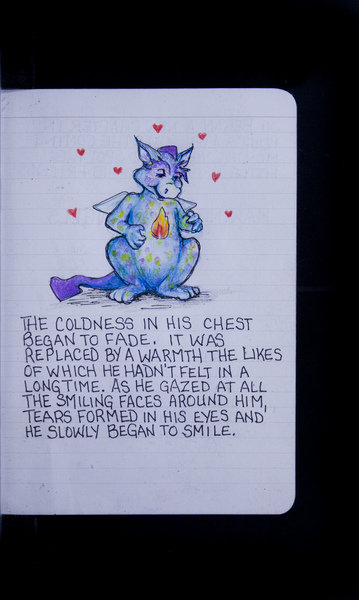 THE COLDNESS IN HIS CHEST
BEGAN TO FADE. IT WAS
REPLACED BY A WARMTH THE LIKES
OF WHICH HE HADN'T FELT IN A
LONG TIME. AS HE GAZED AT ALL
THE SMILING FACES AROUND HIM,
TEARS FORMED IN HIS EYES AND
HE SLOWLY BEGAN TO SMILE.